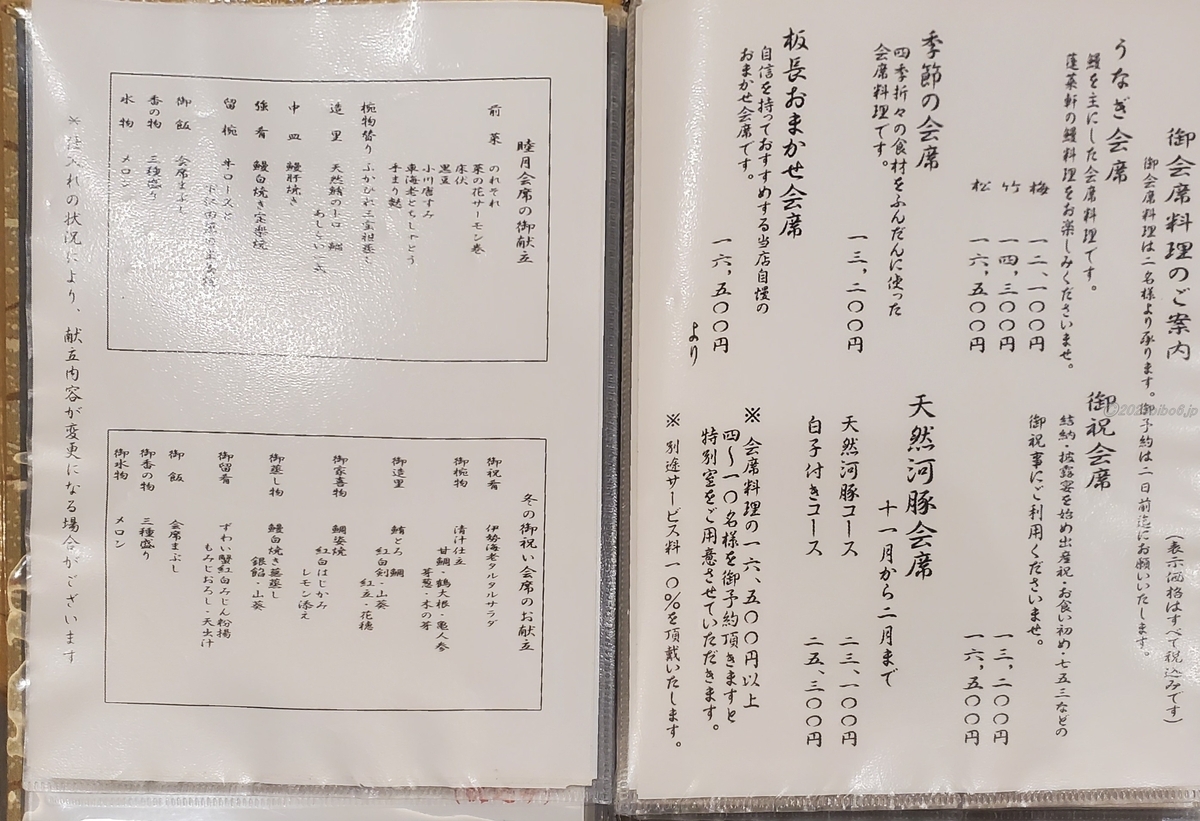 御会席料理のご案内
(表示価格はすべて税込みです)
御会席料理は二名様より承ります。御予約は二日前迄にお願いいたします。
うなぎ会席
鰻を主にした会席料理です。
蓬莱軒の鰻料理をお楽しみくださいませ。
梅 一二、一〇〇円
竹 一四、三〇〇円
松 一六、五〇〇円
季節の会席
四季折々の食材をふんだんに使った
会席料理です。
一三、二〇〇円
板長おまかせ会席
自信を持っておすすめする当店自慢の
おまかせ会席です。
一六、五〇〇円
より
御祝会席
結納・披露宴を始め出産祝・お食い初め・七五三などの
御祝事にご利用くださいませ。
一三、二〇〇円
一六、五〇〇円
天然河豚会席
十一月から二月まで
天然河豚コース 二三、一〇〇円
白子付きコース 二五、三〇〇円
※ 会席料理の一六、五〇〇円以上
四〜一〇名様を御予約頂きますと
特別室をご用意させていただきます。
※ 別途サービス料一〇%を頂戴いたします。
睦月会席の御献立
前菜 のれそれ
菜の花サーモン巻
床伏
黒豆
小川唐すみ
車海老とちしゃとう
手まり麩
椀物替り ふかひれ三宝柑蒸し
造里 天然鮪のトロ 鯛
あしらい一式
中皿 鰻肝焼き
強肴 鰻白焼き・定楽焼
留椀 牛ロースと
御飯 会席まぶし
香の物 三種盛り
水物 メロン
冬の御祝い会席のお献立
御祝肴 伊勢海老タルタルサラダ
御椀物 清汁仕立
甘鯛・鶴大根・亀人参
芽葱・木の芽
御造里 鮪とろ 鯛
紅白剣・山葵
紅立・花穂
御家喜物 鯛姿焼
紅白はじかみ
レモン添え
御蒸し物 鰻白焼き蕪蒸し
銀餡・山葵
御留肴 ずわい蟹紅白みじん粉揚
もみじおろし・天出汁
御飯 会席まぶし
御香の物 三種盛り
御水物 メロン
※ 仕入れの状況により、献立内容が変更になる場合がございます